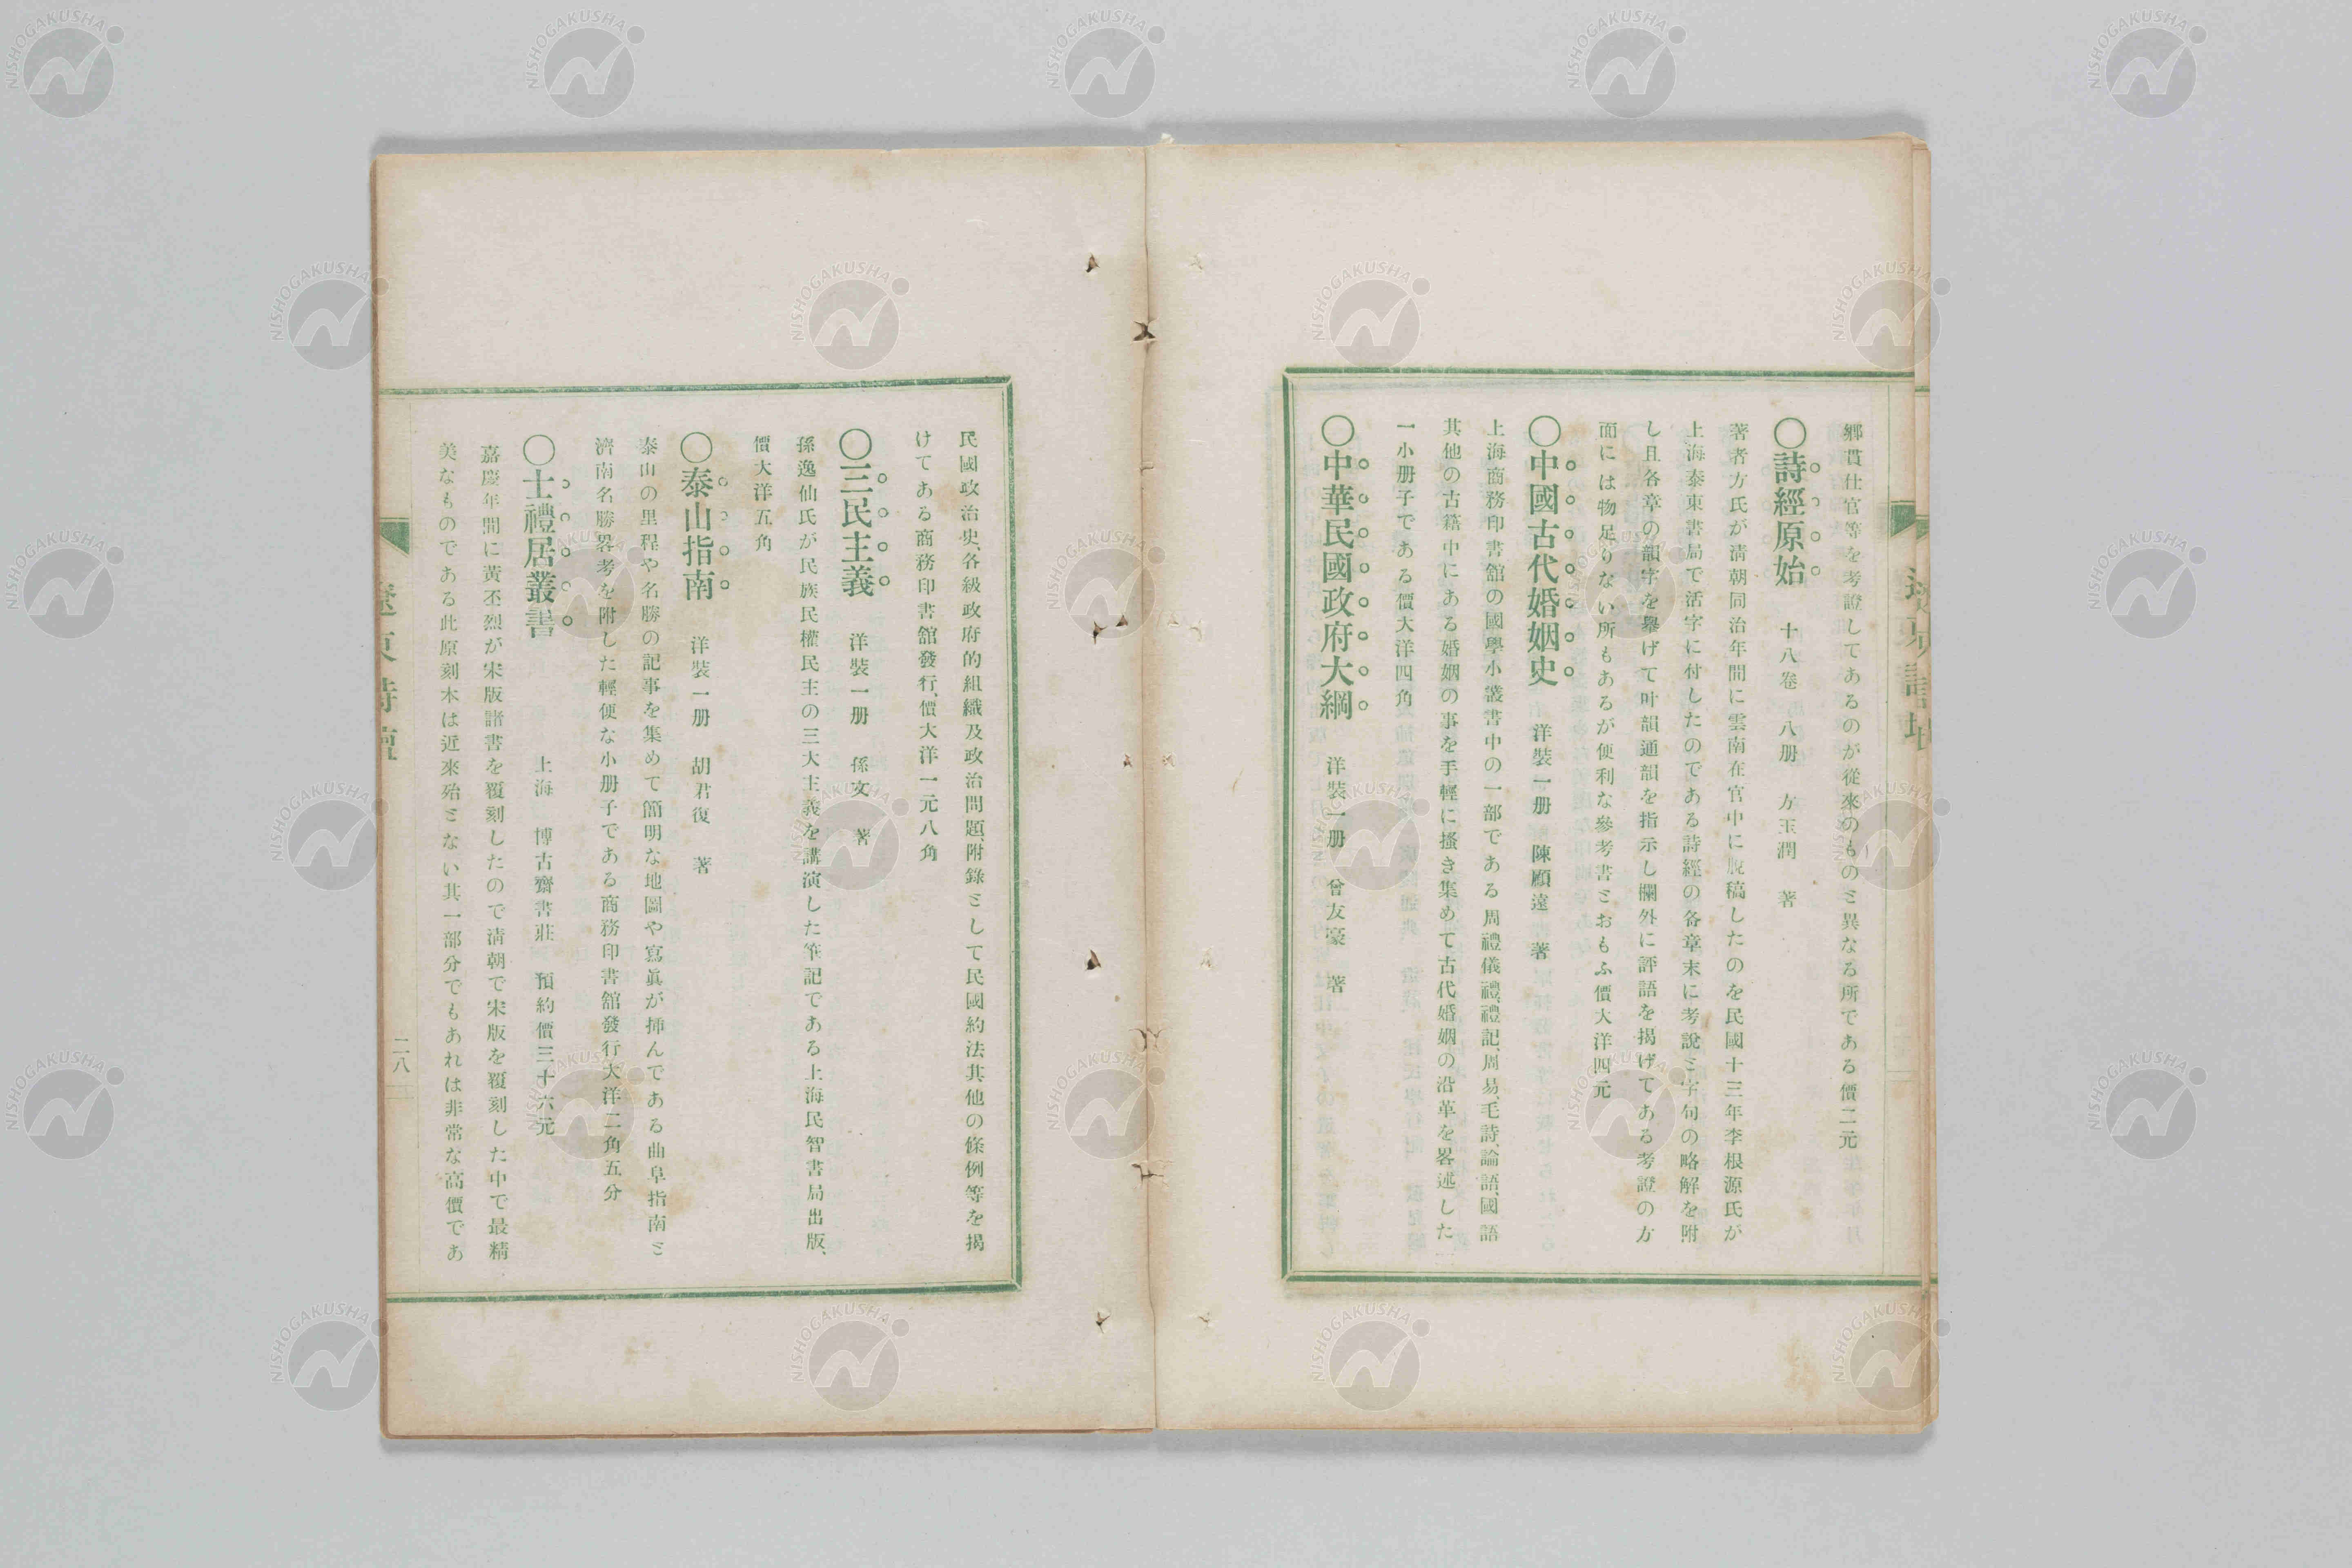 鄕貫仕官等を考證してあるのが從來のものミ異なる所である價二元
〇詩經原始 十八卷 八册 方玉潤 著
著者方氏が淸朝同治年間に雲南在官中に脫稿したのを民國十三年李根源氏が
上海泰東書局で活字に付したのである詩經の各章末に考說ミ字句の略解を附
し且各章の韻字を擧げて叶韻通韻を指示し欄外に評語を揭げてある考證の方
面には物足りない所もあるが便利な參考書ミおもふ價大洋四元
〇中國古代婚姻史 洋裝一册 陳顧遠 著
上海商務印書舘の國學小叢書中の一部である周禮儀禮、禮記、周易、毛詩、論語、國語
其他の古籍中にある婚姻の事を手輕に搔き集めて古代婚姻の沿革を畧述した
一小册子である價大洋四角
〇中華民國政府大綱 洋裝一册 曾友豪 著
民國政治史、各級政府的組織及政治問題、附錄ミして民國約法其他の條例等を揭
けてある商務印書舘發行、價大洋一元八角
〇三民主義 洋裝一册 孫文 著
孫逸仙氏が民族民權民主の三大主義を講演した筆記である上海民智書局出版、
價大洋五角
〇泰山指南 洋裝一册 胡君復 著
泰山の里程や名勝の記事を集めて簡明な地圖や寫眞が揷んである曲阜指南ミ
濟南名勝畧考を附した輕便な小册子である商務印書舘發行大洋二角五分
〇士禮居叢書 上海 博古齋書莊 預約價三十六元
嘉慶年間に黃丕烈が宋版諸書を覆刻したので淸朝で宋版を覆刻した中で最精
美なものである此原刻本は近來殆ミない其一部分でもあれは非常な高價であ
二八
NISHOGAKUSHA